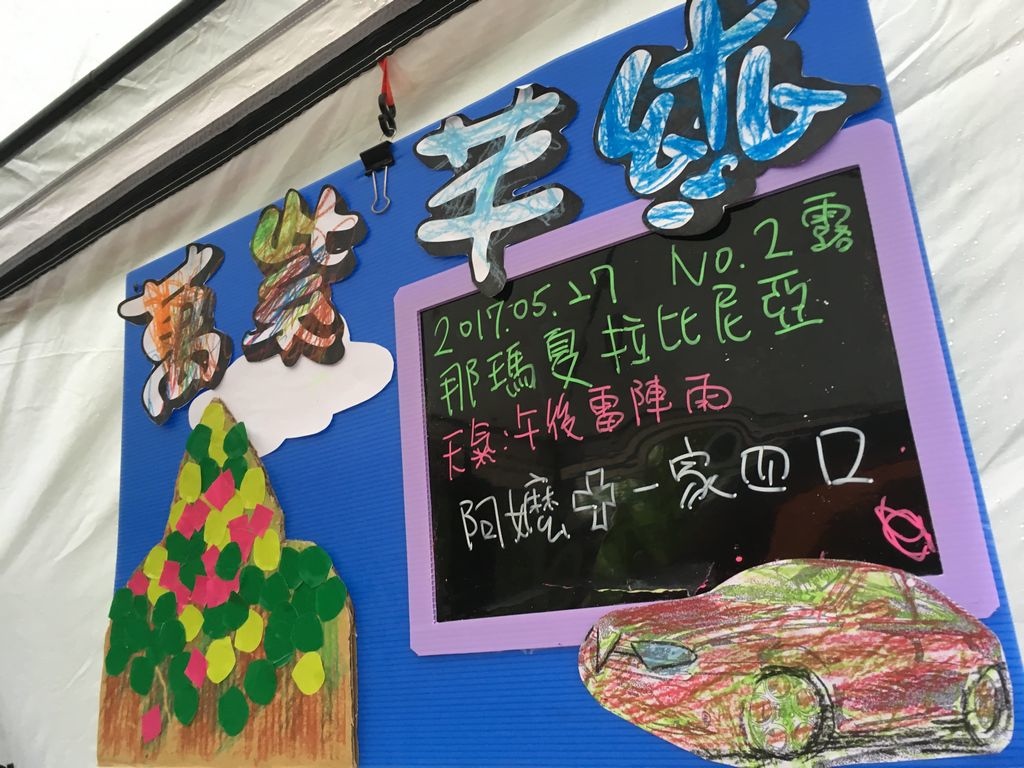 2017.05.27 No.2露
那瑪夏拉比尼亞
天氣:午後雷陣雨
阿嬤+一家四口